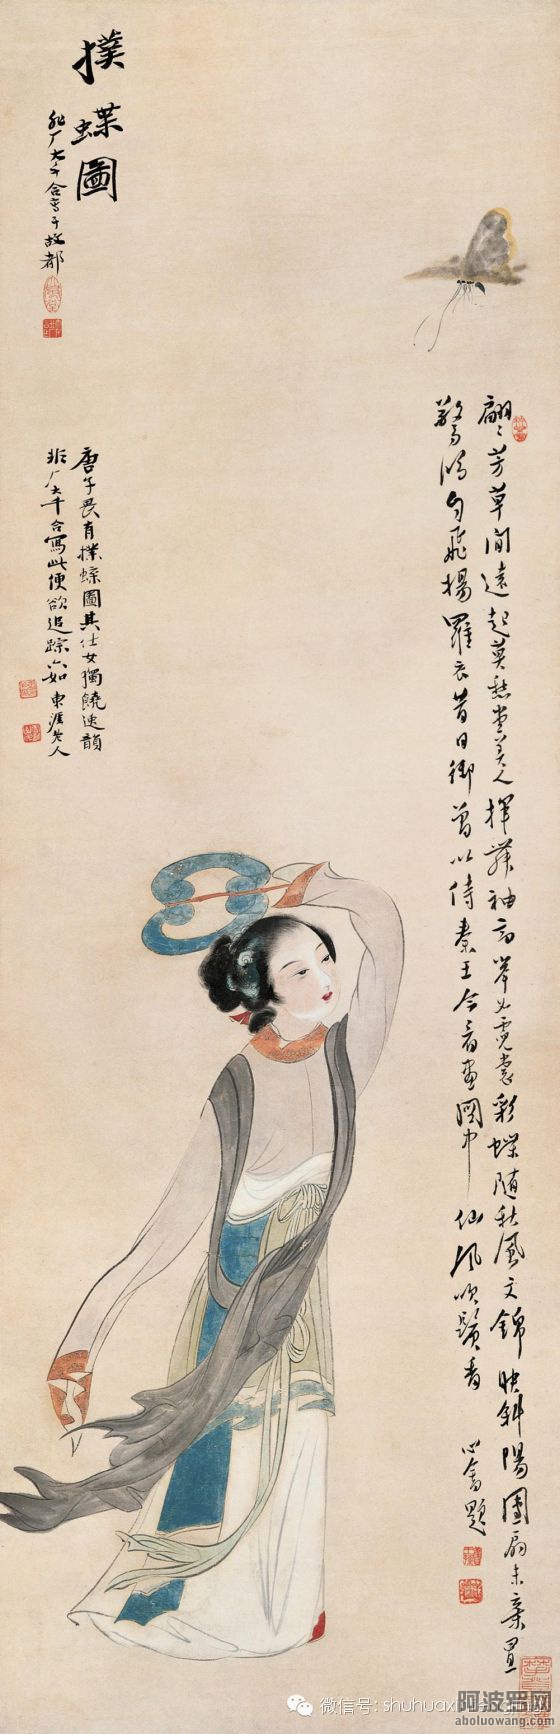 撲蝶圖
非厂大千合寫于故都
唐子畏有撲蝶圖其仕女獨饒逸韻
非厂大千合寫此便欲追踪六如 東涯老人
翩〻芳草間遠起莫愁堂美人揮舞袖高舉如霓裳彩蝶隨秋風文錦映斜陽團扇未棄置
驚鴻自飛揚羅衣昔日御曾以侍秦王今看畫圖中仙風吹鬢香 心畬題
微信号: shuhuax
阿波罗网
aboluowang.com